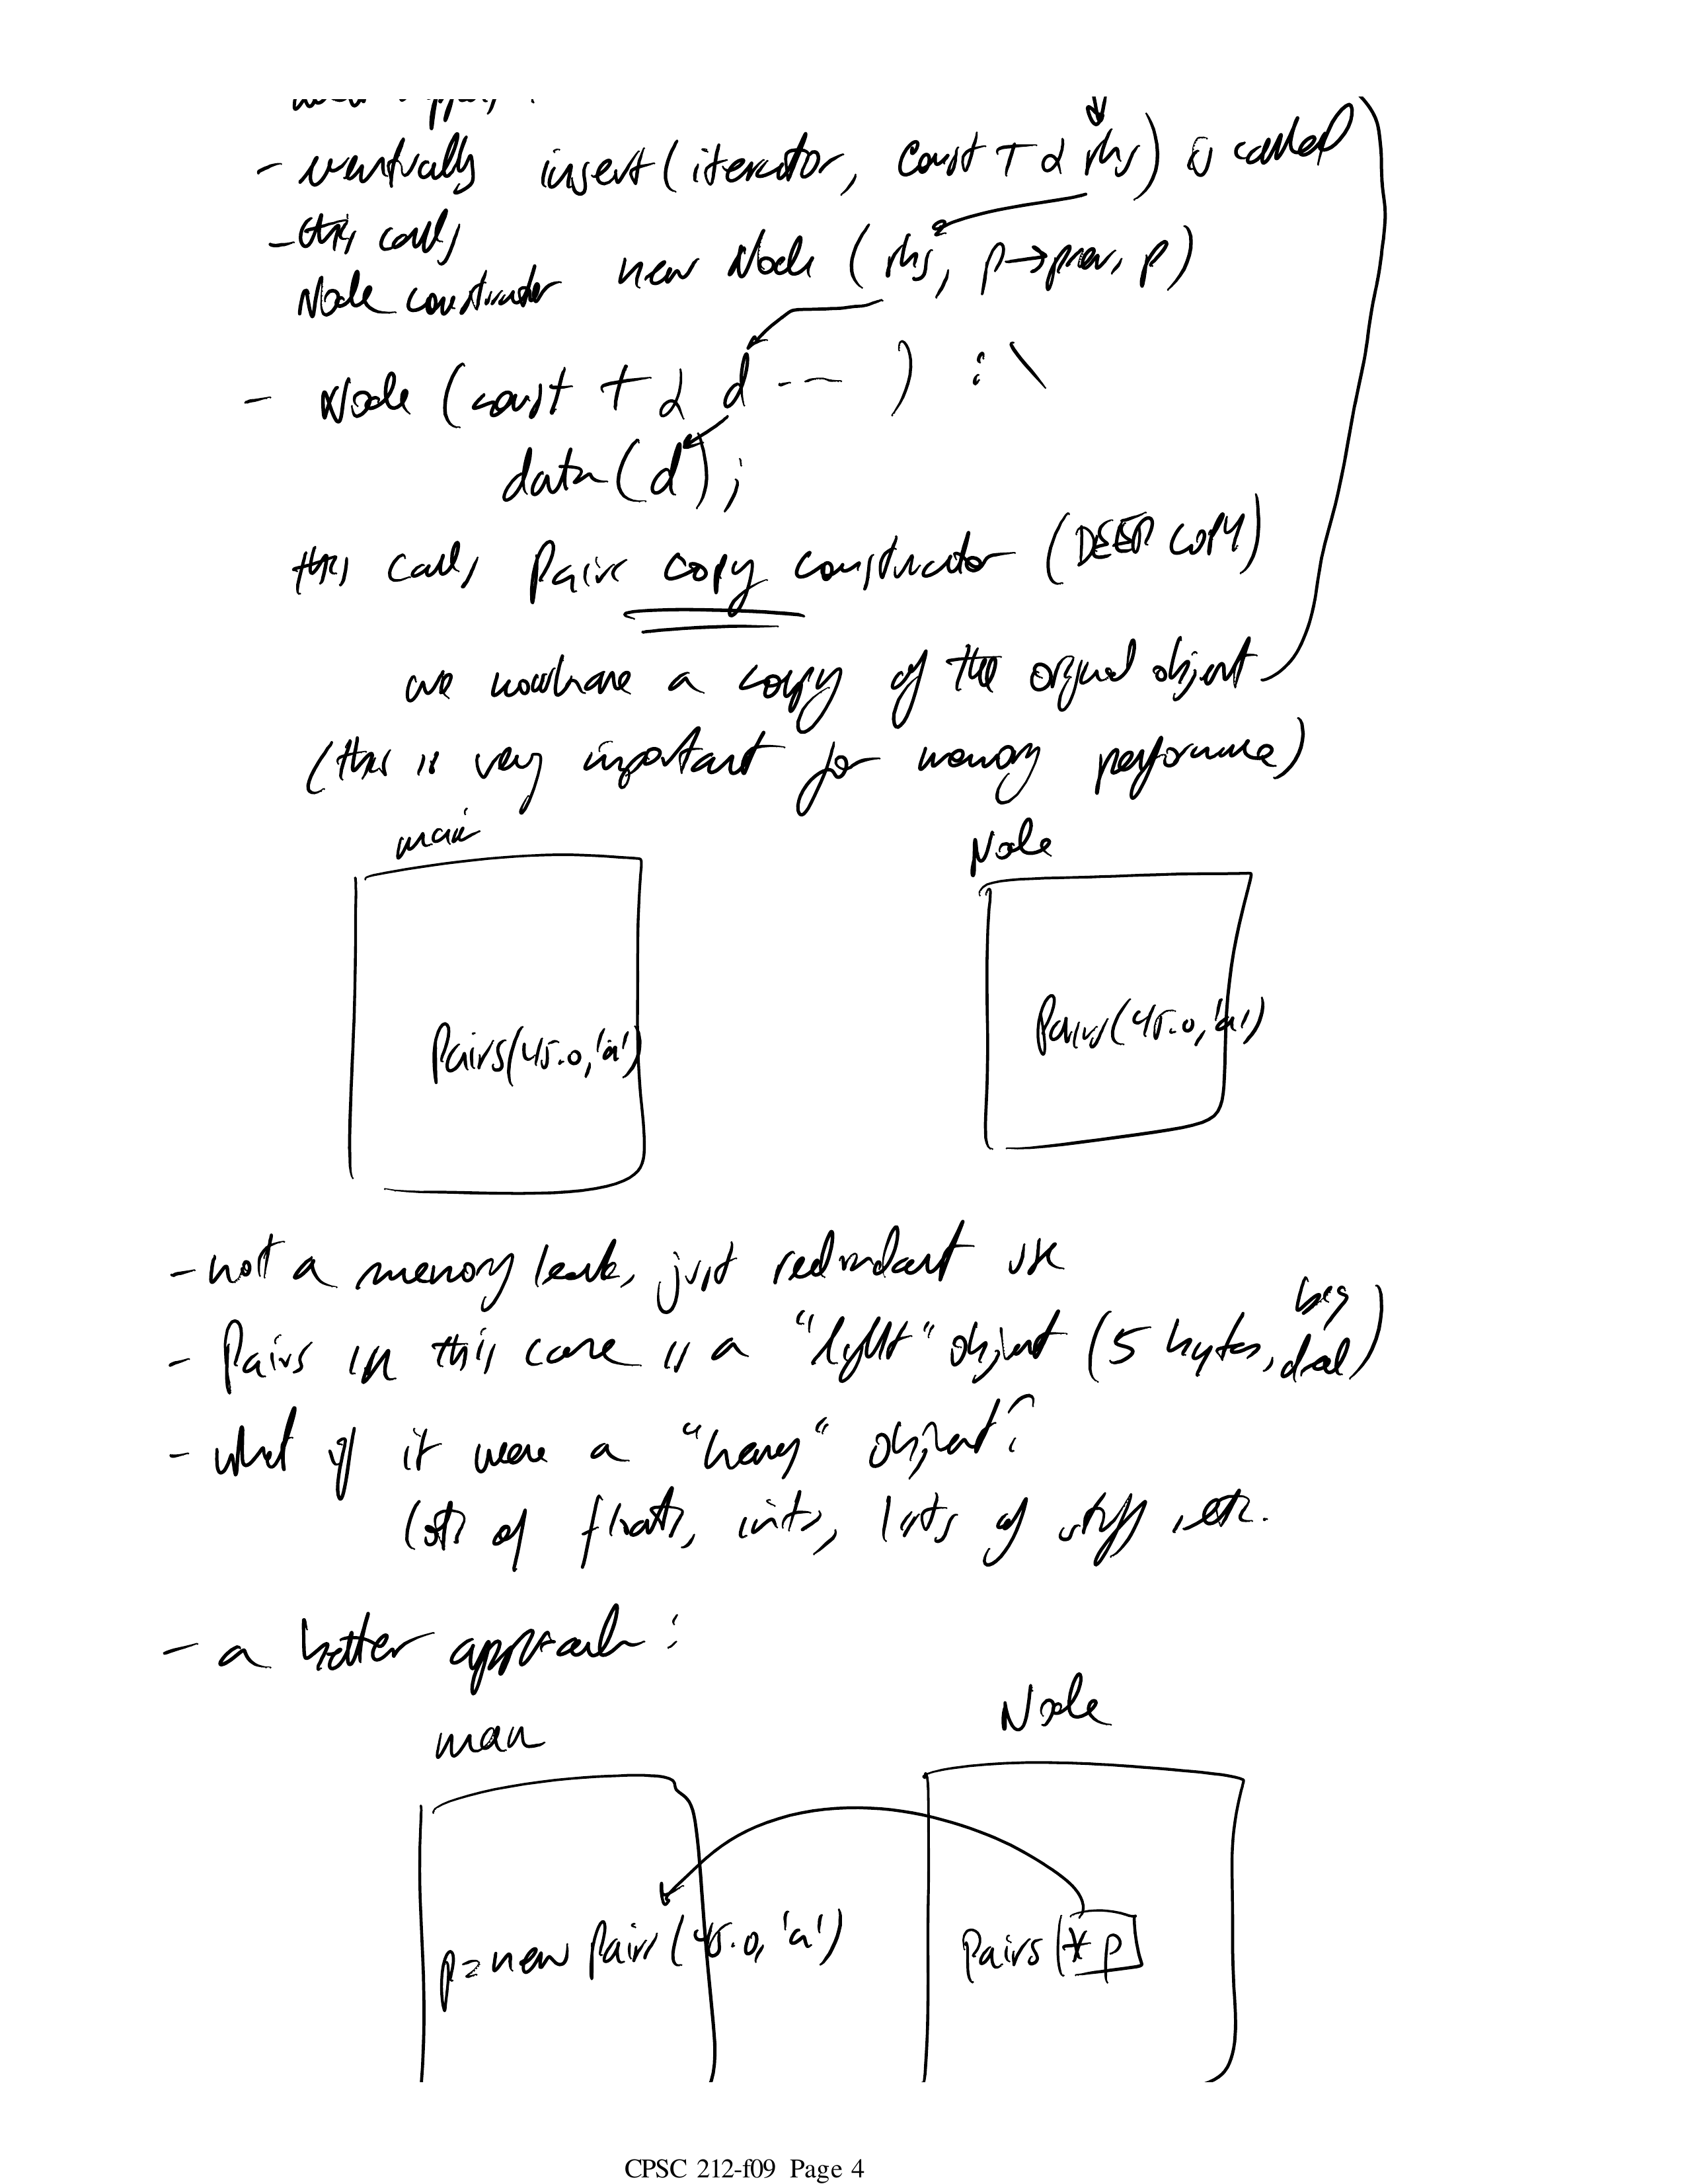 - eventually insert(iterator, const T & rhs) is called
- this calls
Node constructor new Node (rhs, p→prev, p)
- Node (const T & d --- ) : \
data(d);
this calls Pairs copy constructor (DEEP COPY)
we now have a copy of the original object
(this is very important for memory performance)
main Node
Pairs(45.0,'a') Pairs(45.0,'a')
- not a memory leak, just redundant use
- Pairs in this case is a "light" object (5 bytes, big deal)
- what if it were a "heavy" object?
lots of floats, ints, lots of stuff, etc.
- a better approach:
main Node
p=new Pairs(45.0, 'a') Pairs *p
CPSC 212-f09 Page 4